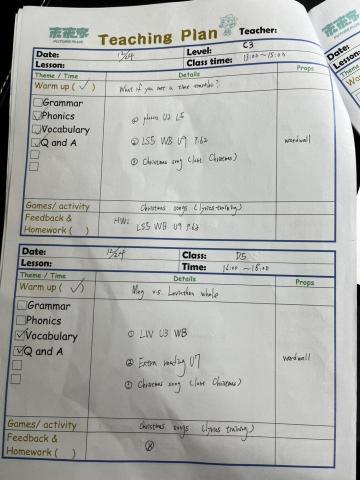 Teaching Plan
Teacher:
Date: 12/24 Level: C3
Lesson: Class time: 13:00~15:00
Theme / Time Details Props
Warm up ( ✓ ) What if you met a time traveler?
Grammar
Phonics ① phonics U2 L5
Vocabulary ② LS5 WB U9 P.62 wordwall
Q and A ③ Christmas song (last Christmas)
Games/ activity Christmas songs (lyrics training)
Feedback & HW:
Homework ( ) LS5 WB U9 P.63
Date: 12/24 Class: D5
Lesson: Time: 16:00~18:00
Theme / Time Details Props
Warm up ( ✓ ) Meg v.s. Leviathan whale
Grammar
Phonics
Vocabulary ① LIV U3 WB
Q and A ② Extra reading U7 wordwall
③ Christmas song (last Christmas)
Games/ activity Christmas songs (lyrics training)
Feedback &
Homework ( )